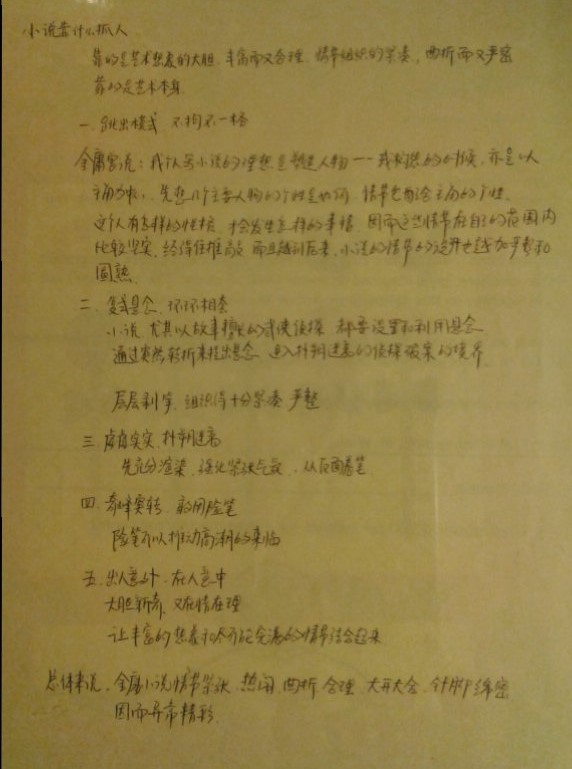 小说靠什么抓人
靠的是艺术想象的大胆、丰富而又合理，情节组织的紧凑、曲折而又严密
靠的是艺术本身
一、跳出模式 不拘一格
金庸曾说：我认为小说的理想是塑造人物——我构思的时候，亦是以
主角为主，先想几个主要人物的个性是如何，情节也配合主角的个性
这个人有怎样的性格，才会发生怎样的事情，因而这些情节在自己的范围内
比较坚实、经得住推敲 而且越到后来，小说的情节的设计也越加严整和
圆熟
二、复式悬念、环环相套
小说，尤其以故事 的武侠侦探，都要设置和利用悬念
通过突然转折来推出悬念，进入扑朔迷离的侦探破案的境界
层层剥笋，组织得十分紧凑、严整
三、虚虚实实、扑朔迷离
先充分渲染，强化紧张气氛，从反面着笔
四、奇峰突转、敢用险笔
险笔可以推动高潮的来临
五、出人意外，在人意中
大胆新奇，又在情在理
让丰富的想象和尽可能完满的情节结合起来
总体来说，金庸小说情节紧张、热闹、曲折、合理、大开大合、针脚绵密
因而异常精彩